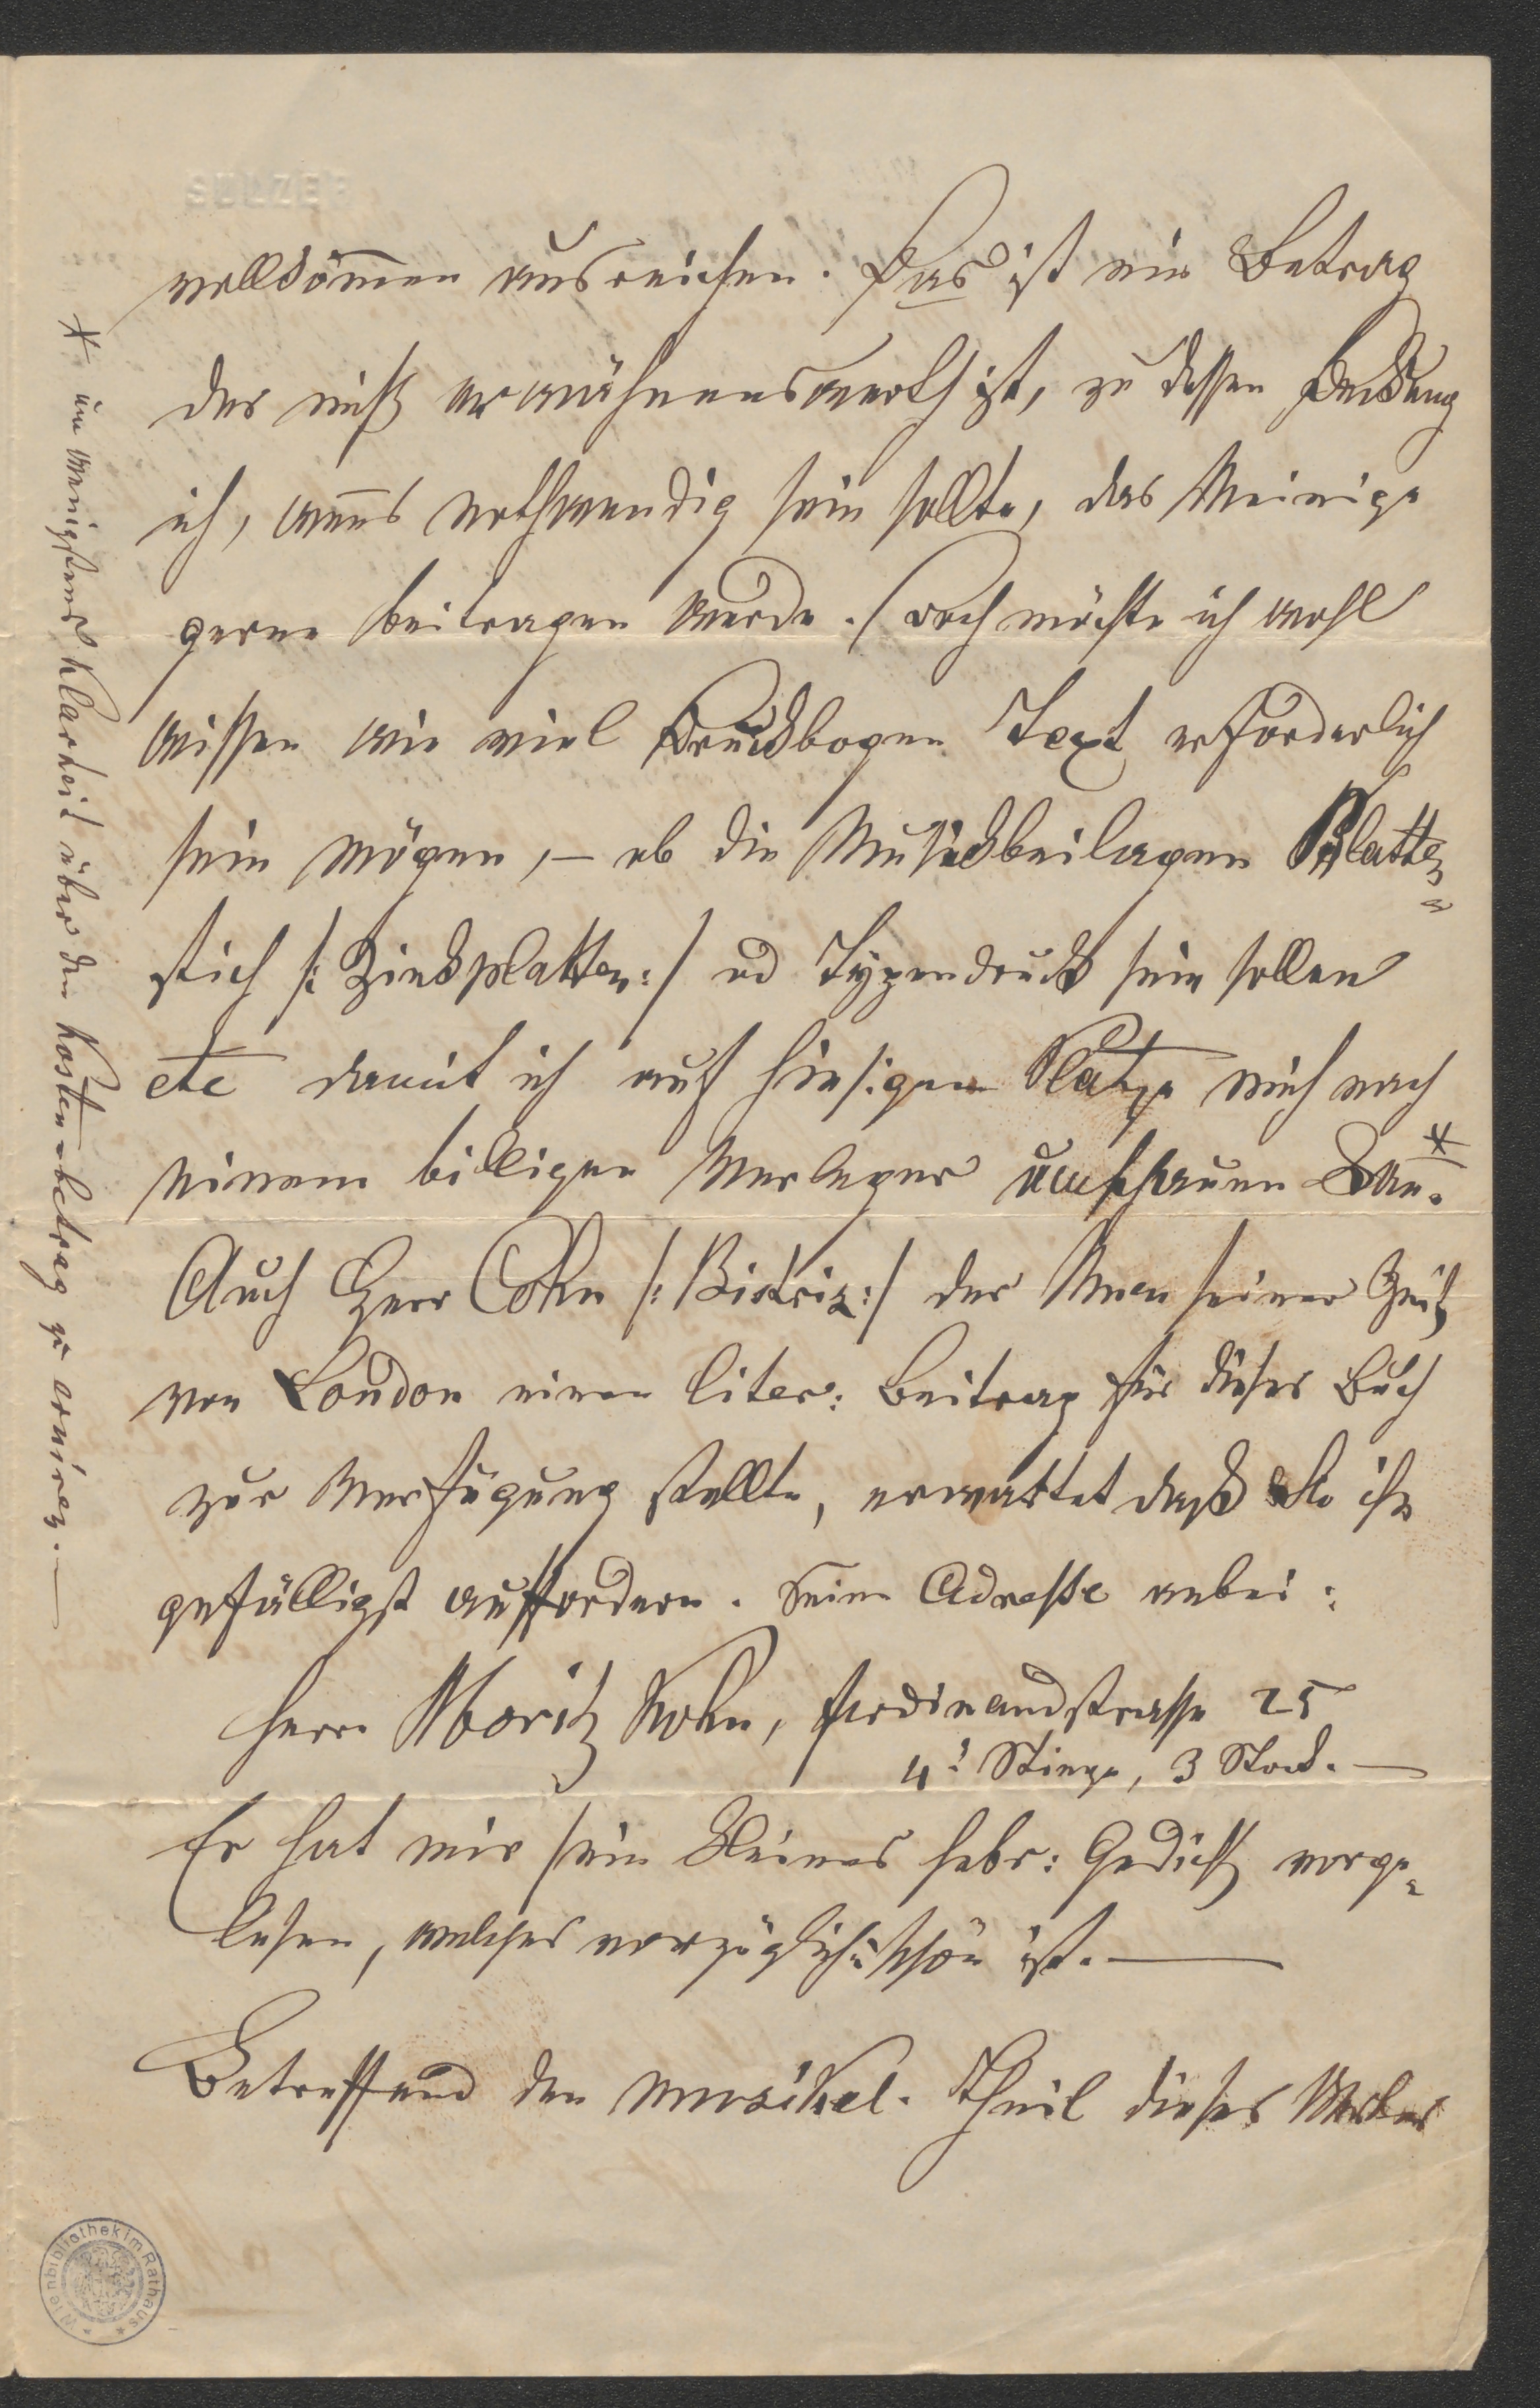 SULZER
vollkom̅en ausreichen. Das ist ein Betrag
der nicht erwähnenswerth ist, zu dessen Deckung
ich, wen̅s nothwendig sein sollte, das Meinige
gerne beitragen werde. / doch möchte ich wohl
wissen wie viel Druckbogen Text erforderlich
sein mögen, – ob die Musickbeilagen Platten=
stich /: Zinkplatten :/ od Typendruck sein sollen
etc damit ich auf hiesigen Platze mich nach
einem billigen Verleger umschauen kan̅. *
Auch Herr Cohn /: Bistriz :/ der Ihnen seiner Zeit
von London einen liter: Beitrag für dieses Buch
zur Verfügung stellte, erwartet daß Sie ihn
gefälligst auffordern. Seine Adresse anbei:
Herr Moritz Kohn, Ferdinandstrasse 25
4te Stiege, 3 Stock. —
Er hat mir sein kleines hebr: Gedicht vorge=
lesen, welches vorzüglich schön ist. —
Betreffend den musikal. Theil dieses Werkes
* um wenigstens Klarheit über den Kostenbetrag zu eruiren. —
Wienbibliothek im Rathaus